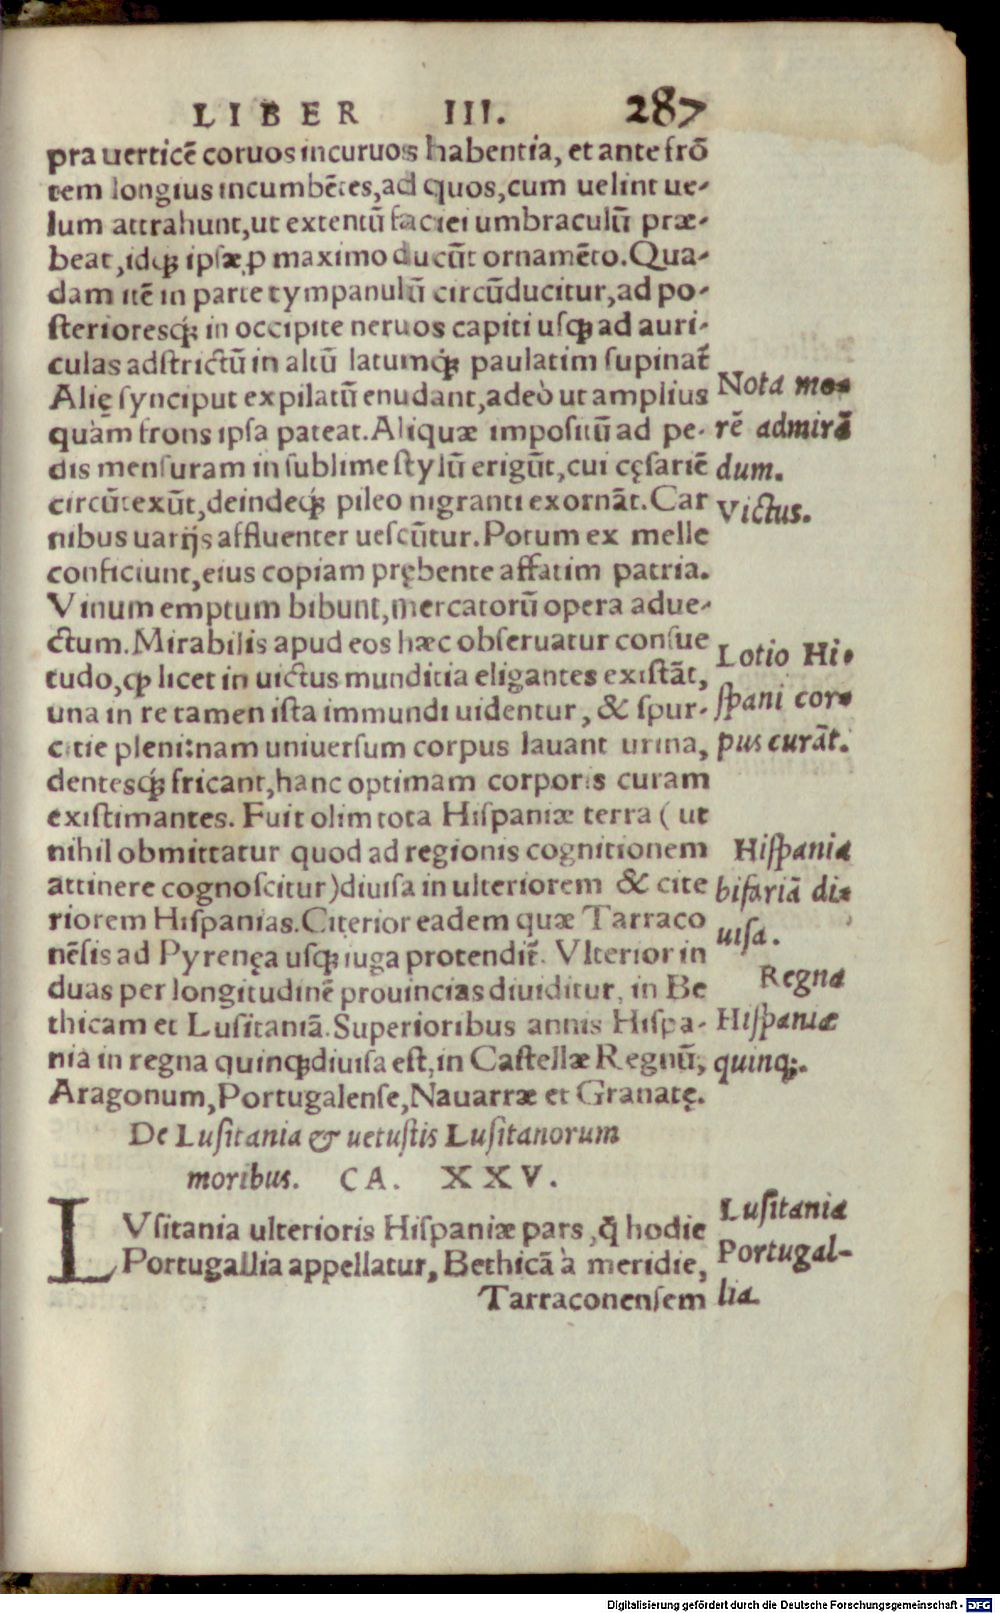 LIBER III. 287
pra uerticē coruos incuruos habentia, et ante frō
tem longius incumbētes, ad quos, cum uelint ue-
lum attrahunt, ut extentū faciei umbraculū præ-
beat, idq; ipsæ ꝓ maximo ducūt ornamēto. Qua-
dam itē in parte tympanulū circūducitur, ad po-
sterioresq; in occipite neruos capiti usq; ad auri-
culas adstrictū in altū latumq; paulatim supinat̄
Alię synciput expilatū enudant, adeò ut amplius
quàm frons ipsa pateat. Aliquæ impositū ad pe-
dis mensuram in sublime stylū erigūt, cui cęsariē
circūtexūt, deindeq; pileo nigranti exornāt. Car
nibus uarijs affluenter uescūtur. Potum ex melle
conficiunt, eius copiam prębente affatim patria.
Vinum emptum bibunt, mercatorū opera adue-
ctum. Mirabilis apud eos hæc obseruatur consue
tudo, ꝙ licet in uictus munditia eligantes existāt,
una in re tamen ista immundi uidentur, & spur-
citie pleni: nam uniuersum corpus lauant urina,
dentesq; fricant, hanc optimam corporis curam
existimantes. Fuit olim tota Hispaniæ terra ( ut
nihil obmittatur quod ad regionis cognitionem
attinere cognoscitur) diuisa in ulteriorem & cite
riorem Hispanias. Citerior eadem quæ Tarraco
nēsis ad Pyrenęa usq; iuga protendit̄. Vlterior in
duas per longitudinē prouincias diuiditur, in Be
thicam et Lusitaniā. Superioribus annis Hispa-
nia in regna quinq; diuisa est, in Castellæ Regnū,
Aragonum, Portugalense, Nauarræ et Granatę.
De Lusitania & uetustis Lusitanorum
moribus. CA. XXV.
LVsitania ulterioris Hispaniæ pars, q̄ hodie
Portugallia appellatur, Bethicā à meridie,
Tarraconensem
Nota mo-
rē admirā
dum.
Victus.
Lotio Hi-
spani cor-
pus curāt.
Hispania
bifariā di-
uisa.
Regna
Hispaniæ
quinq;.
Lusitania
Portugal-
lia.
Digitalisierung gefördert durch die Deutsche Forschungsgemeinschaft - DFG